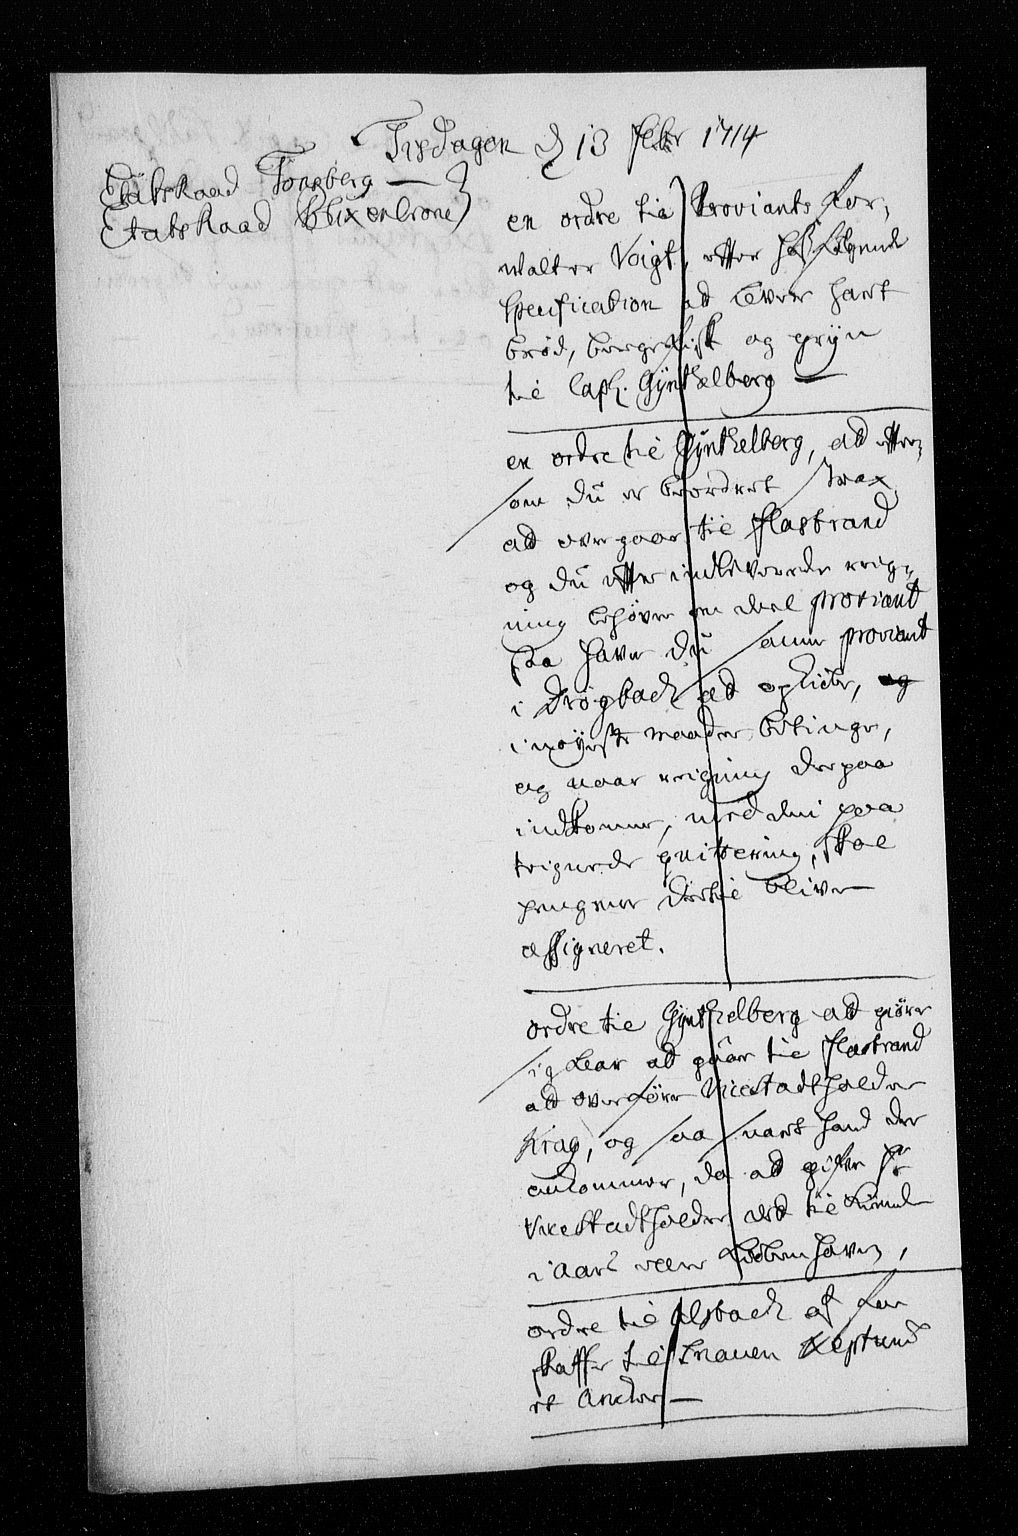 Tisdagen d 13 Febr 1714
Etatsraad Tonsberg
Etatsraad Blixencrone
en ordre til Proviants For-
walter Voigt, efter hos følgende
specification at levere hart
brød, bergefisk og gryn
til Capt. Gyntelberg
en ordre til Gyntelberg, ad efter-
som du er beordret strax
ad overgaar til Flastrand
og du efter indleverede reig-
ning behøver en deel proviant
saa haver du samme proviant
i Drøgback ad opkiøbe, og
i nøyeste maader betinge,
og naar reigning derpaa
indkommer, med din paa
teignede qvittering, skal
pengene dertil bliver
assigneret.
ordre til Gyntelberg ad giøre
sig klar ad gaar til Flastrand
ad overføre Vicestadtholder
Krag, og saa snart hand der
ankommer, da ad gifve hr
Vicestadtholder det til kiende
i Aars eller Kiøbenhavn,
ordre til Alsbach at for
skaffe til Snauen Neptunus
et Ancker